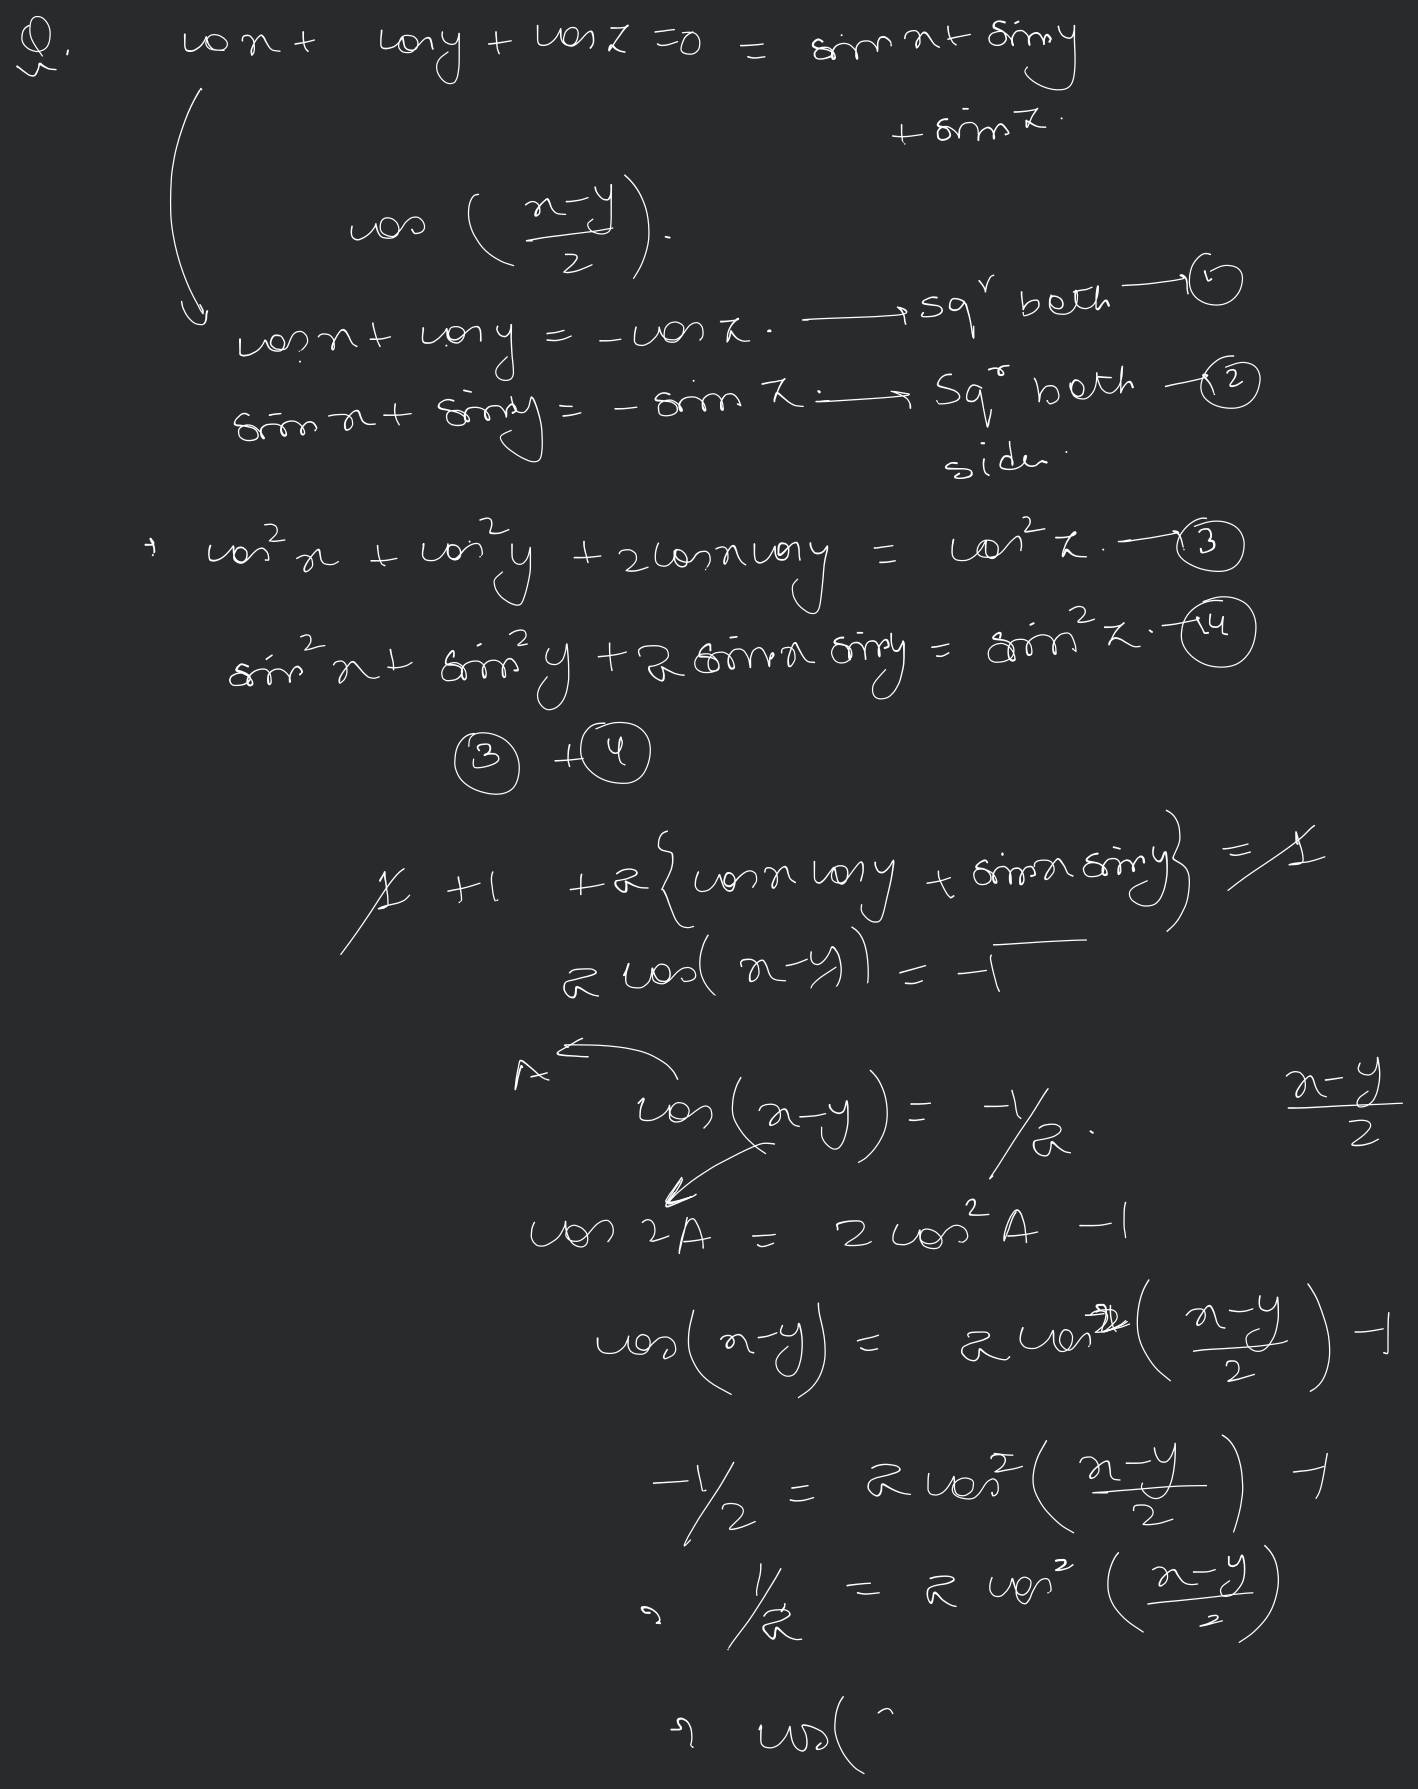 Q. cos x + cos y + cos z = 0 = sin x + sin y
+ sin z.
cos (x-y/2).
cos x + cos y = - cos z. → sqʳ both → ①
sin x + sin y = - sin z. → sqʳ both → ②
side.
+ cos²x + cos²y + 2 cos x cos y = cos²z. → ③
sin²x + sin²y + 2 sin x sin y = sin²z. → ④
③ + ④
1 + 1 + 2{cos x cos y + sin x sin y} = 1
2 cos(x-y) = -1
A ← cos(x-y) = -1/2. x-y/2
cos 2A = 2 cos²A - 1
cos(x-y) = 2 cos²(x-y/2) - 1
-1/2 = 2 cos²(x-y/2) - 1
, 1/2 = 2 cos²(x-y/2)
, cos(